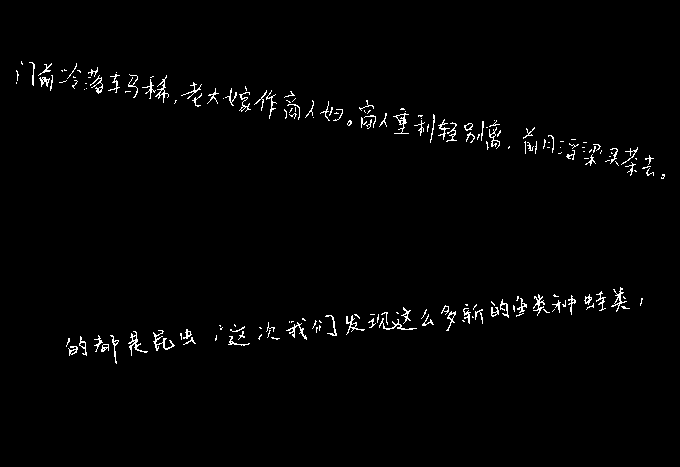 门前冷落车马稀，老大嫁作商人妇。商人重利轻别离，前月浮梁买茶去。
的都是昆虫，这次我们发现这么多新的鱼类和蛙类，